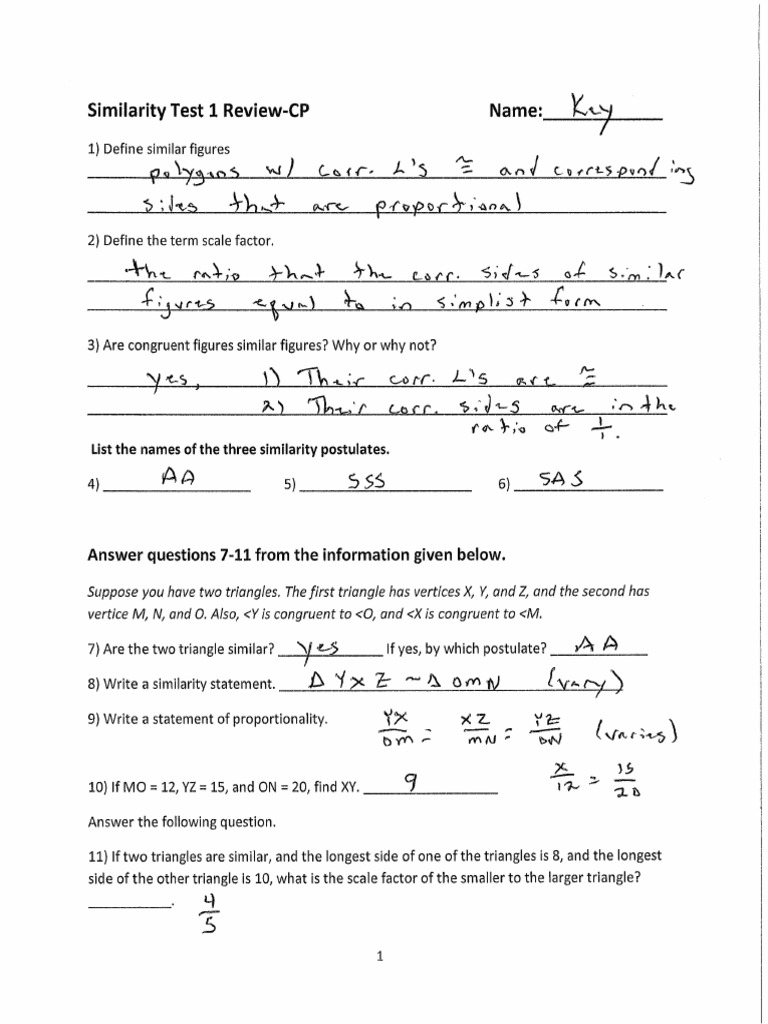 Similarity Test 1 Review-CP Name: Key
1) Define similar figures
polygons w/ corr. L's ≅ and corresponding
sides that are proportional
2) Define the term scale factor.
the ratio that the corr. sides of similar
figures equal to in simplist form
3) Are congruent figures similar figures? Why or why not?
yes, 1) Their corr. L's are ≅
2) Their corr. sides are in the
ratio of 1/1.
List the names of the three similarity postulates.
4) AA 5) SSS 6) SAS
Answer questions 7-11 from the information given below.
Suppose you have two triangles. The first triangle has vertices X, Y, and Z, and the second has
vertice M, N, and O. Also, <Y is congruent to <O, and <X is congruent to <M.
7) Are the two triangle similar? yes If yes, by which postulate? AA
8) Write a similarity statement. Δ YXZ ~ Δ OMN (vary)
9) Write a statement of proportionality. YX/OM = XZ/MN = YZ/ON (varies)
10) If MO = 12, YZ = 15, and ON = 20, find XY. 9 X/12 = 15/20
Answer the following question.
11) If two triangles are similar, and the longest side of one of the triangles is 8, and the longest
side of the other triangle is 10, what is the scale factor of the smaller to the larger triangle?
. 4/5
1